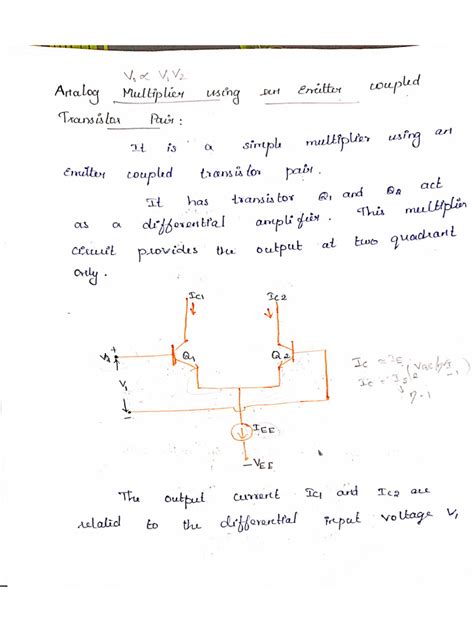 V₀ ∝ V₁V₂
Analog Multiplier using an Emitter coupled
Transistor Pair :
It is a simple multiplier using an
Emitter coupled transistor pair.
It has transistor Q₁ and Q₂ act
as a differential amplifier. This multiplier
circuit provides the output at two quadrant
only.
Ic1 Ic2
Q₁ Q₂
+
V₁
-
IEE
-VEE
The output current Ic1 and Ic2 are
related to the differential input voltage V₁